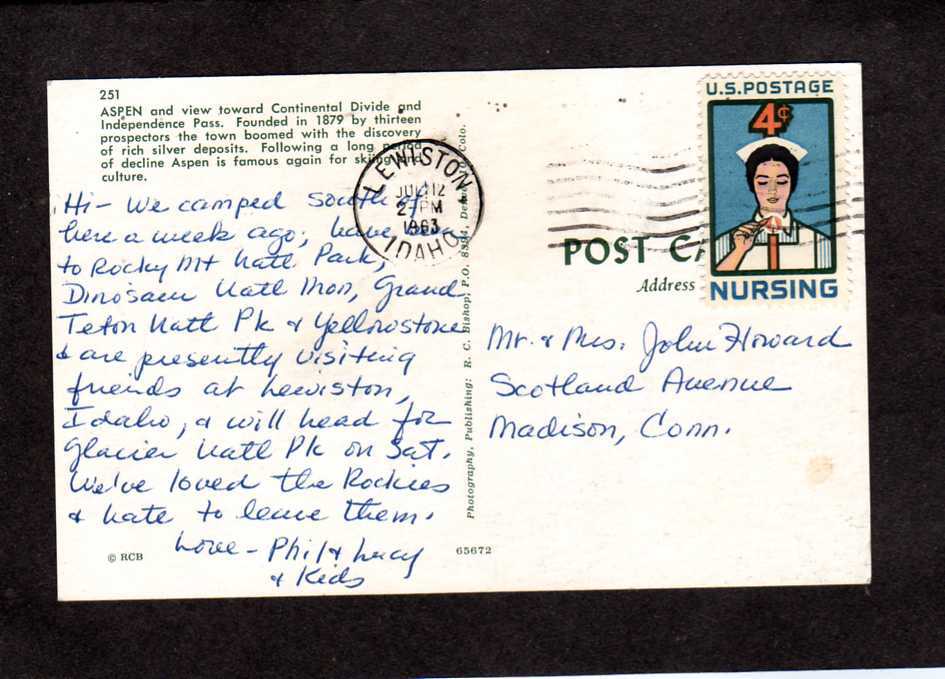 251
ASPEN and view toward Continental Divide and
Independence Pass. Founded in 1879 by thirteen
prospectors the town boomed with the discovery
of rich silver deposits. Following a long period
of decline Aspen is famous again for skiing and
culture.
Hi - We camped south of
here a week ago; have been
to Rocky Mt Natl Park,
Dinosaur Natl Mon, Grand
Teton Natl Pk & Yellowstone
& are presently visiting
friends at Lewiston,
Idaho, & will head for
Glacier Natl Pk on Sat.
We've loved the Rockies
& hate to leave them.
Love - Phil & Lucy
& Kids
© RCB
65672
Photography, Publishing: R. C. Bishop, P.O. 8594, Colo.
LEWISTON
JUL 12
2 PM
1963
IDAHO
U.S. POSTAGE
4¢
NURSING
POST
Address
Mr. & Mrs. John Howard
Scotland Avenue
Madison, Conn.